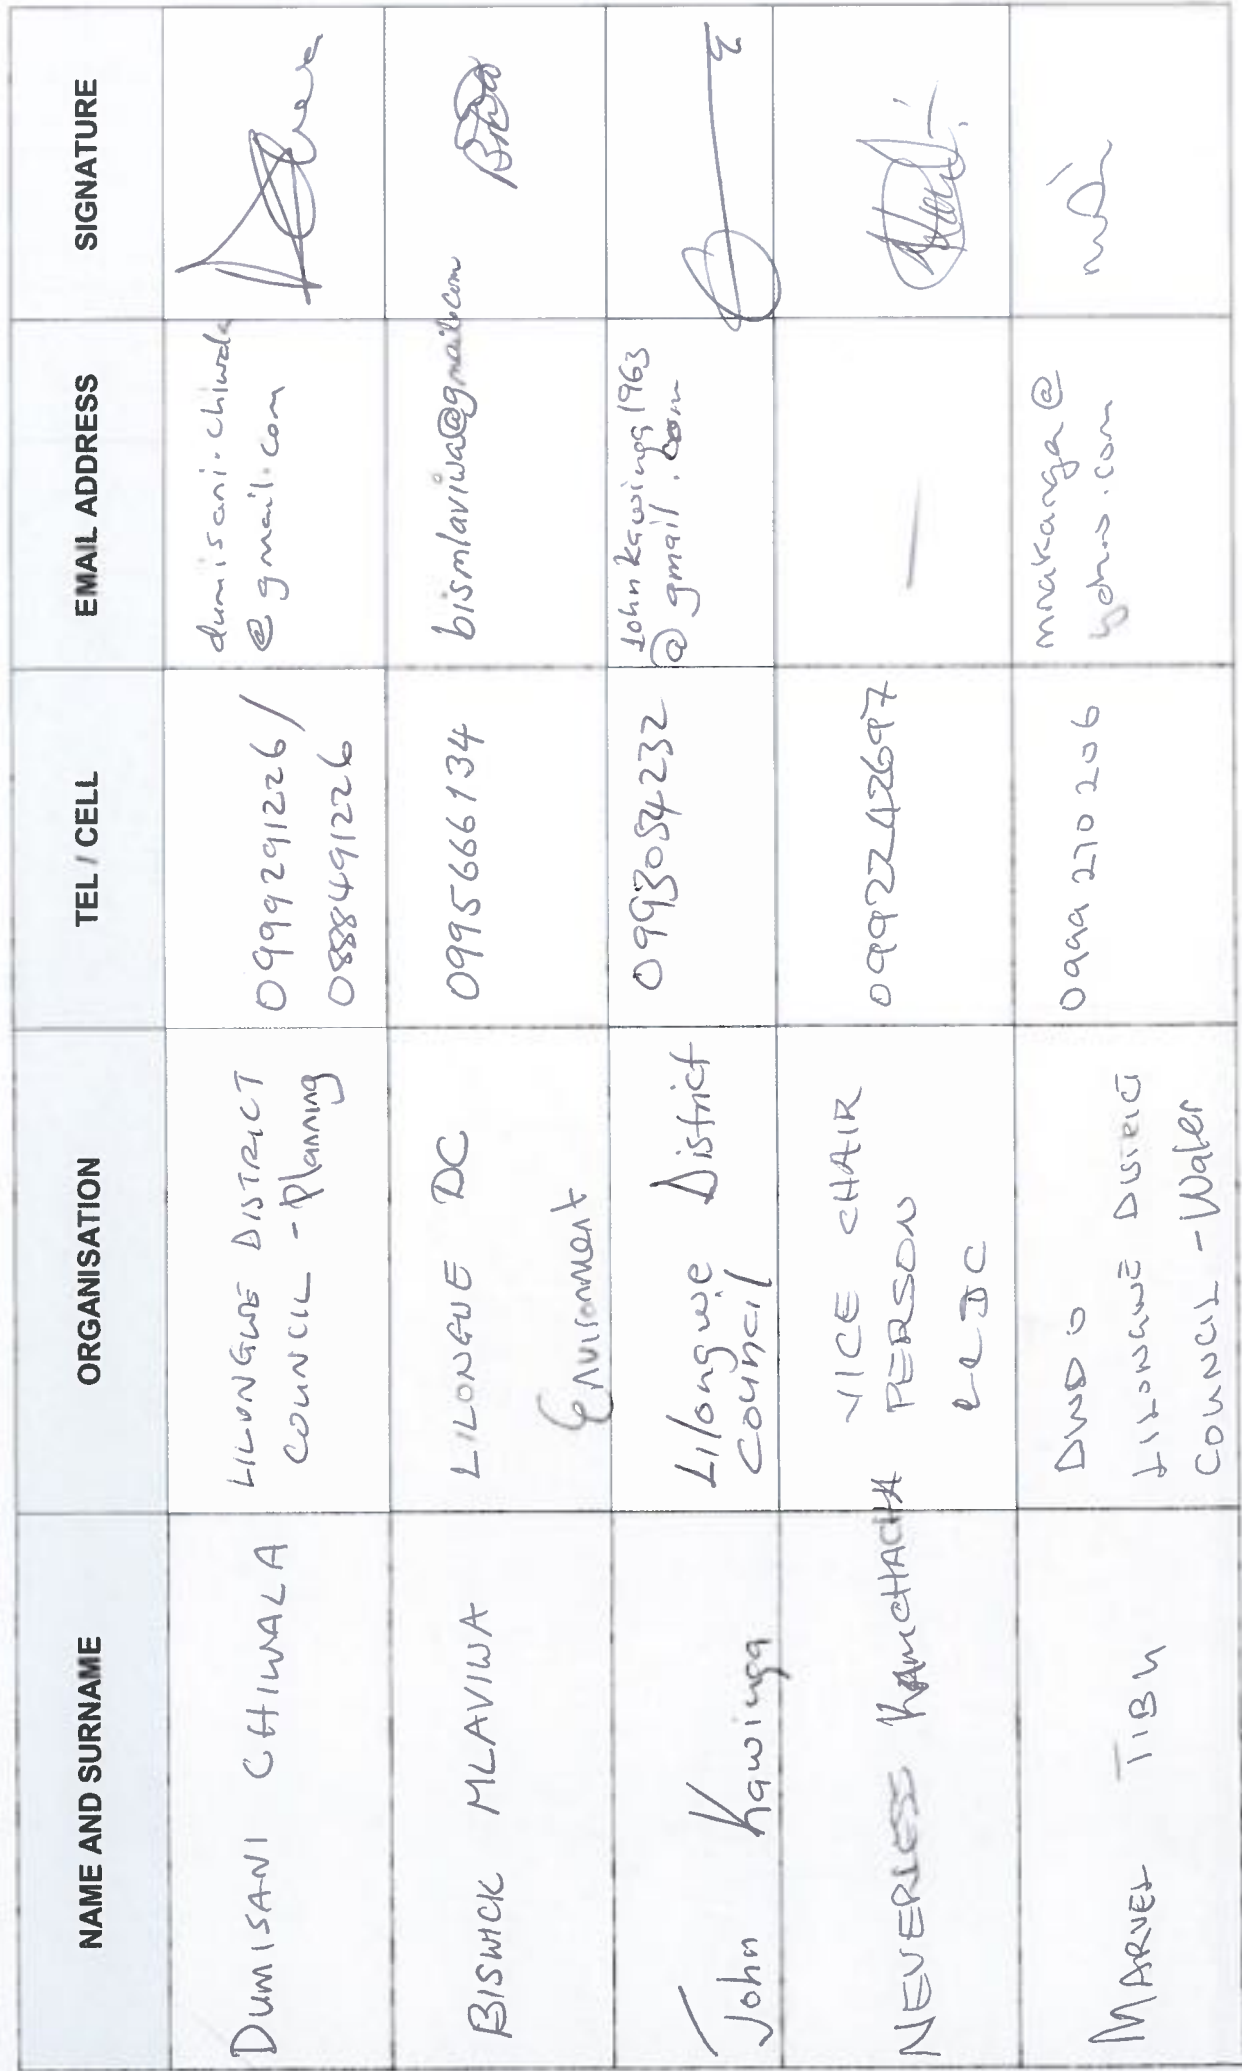 NAME AND SURNAME
ORGANISATION
TEL / CELL
EMAIL ADDRESS
SIGNATURE
DUMISANI CHIWALA
LILONGWE DISTRICT
COUNCIL - Planning
0999291226 /
0888491226
dumisani.chiwala
@gmail.com
BISWICK MLAVIWA
LILONGUE DC
Environment
0995666134
bismlaviwa@gmail.com
John Kawinga
Lilongwe District
Council
0993054232
johnkawinga1963
@gmail.com
NEVERLESS KAMCHACHA
VICE CHAIR
PERSON
LLDC
0992242697
—
MARVEL TIBU
DWDO
LILONGWE DISTRICT
COUNCIL - Water
0999 270 206
mnakanga@
yahoo.com